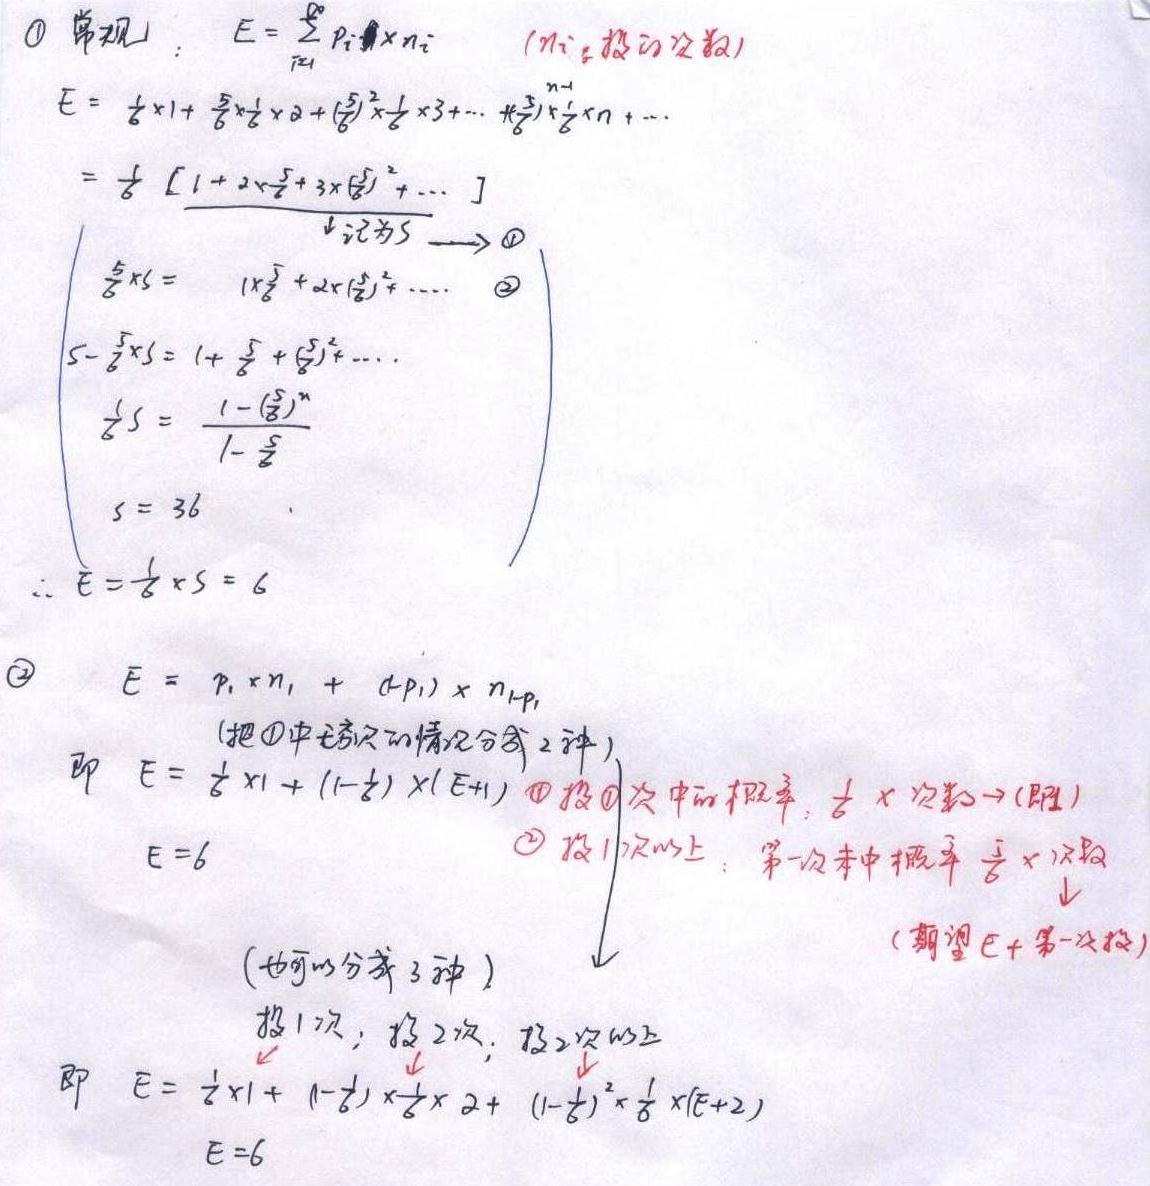 ① 常规: E = ∑_{i=1}^{∞} p_i × n_i (n_i: 投的次数)
E = 1/6 ×1 + 5/6 × 1/6 × 2 + (5/6)^2 × 1/6 × 3 + ⋯ + (5/6)^{n-1} × 1/6 × n + ⋯
= 1/6 [1 + 2×5/6 + 3×(5/6)^2 + ⋯ ]
↓ 记为S → ①
5/6 ×S = 1×5/6 + 2×(5/6)^2 + ⋯⋯ ②
S - 5/6 ×S = 1 + 5/6 + (5/6)^2 + ⋯⋯
1/6 S = (1-(5/6)^n) / (1-5/6)
S = 36
∴ E = 1/6 × S = 6
② E = p_1 × n_1 + (1-p_1) × n_{1-p_1}
(把①中无穷次的情况分成2种)
即 E = 1/6 ×1 + (1-1/6) ×(E+1) ① 投①次中的概率: 1/6 × 次数→(即1)
E = 6 ② 投1次以上: 第一次未中概率 5/6 × 次数
↓
(期望E + 第一次投)
(也可以分成3种)
投1次; 投2次; 投2次以上
即 E = 1/6 ×1 + (1-1/6) × 1/6 × 2 + (1-1/6)^2 × 1/6 ×(E+2)
E = 6